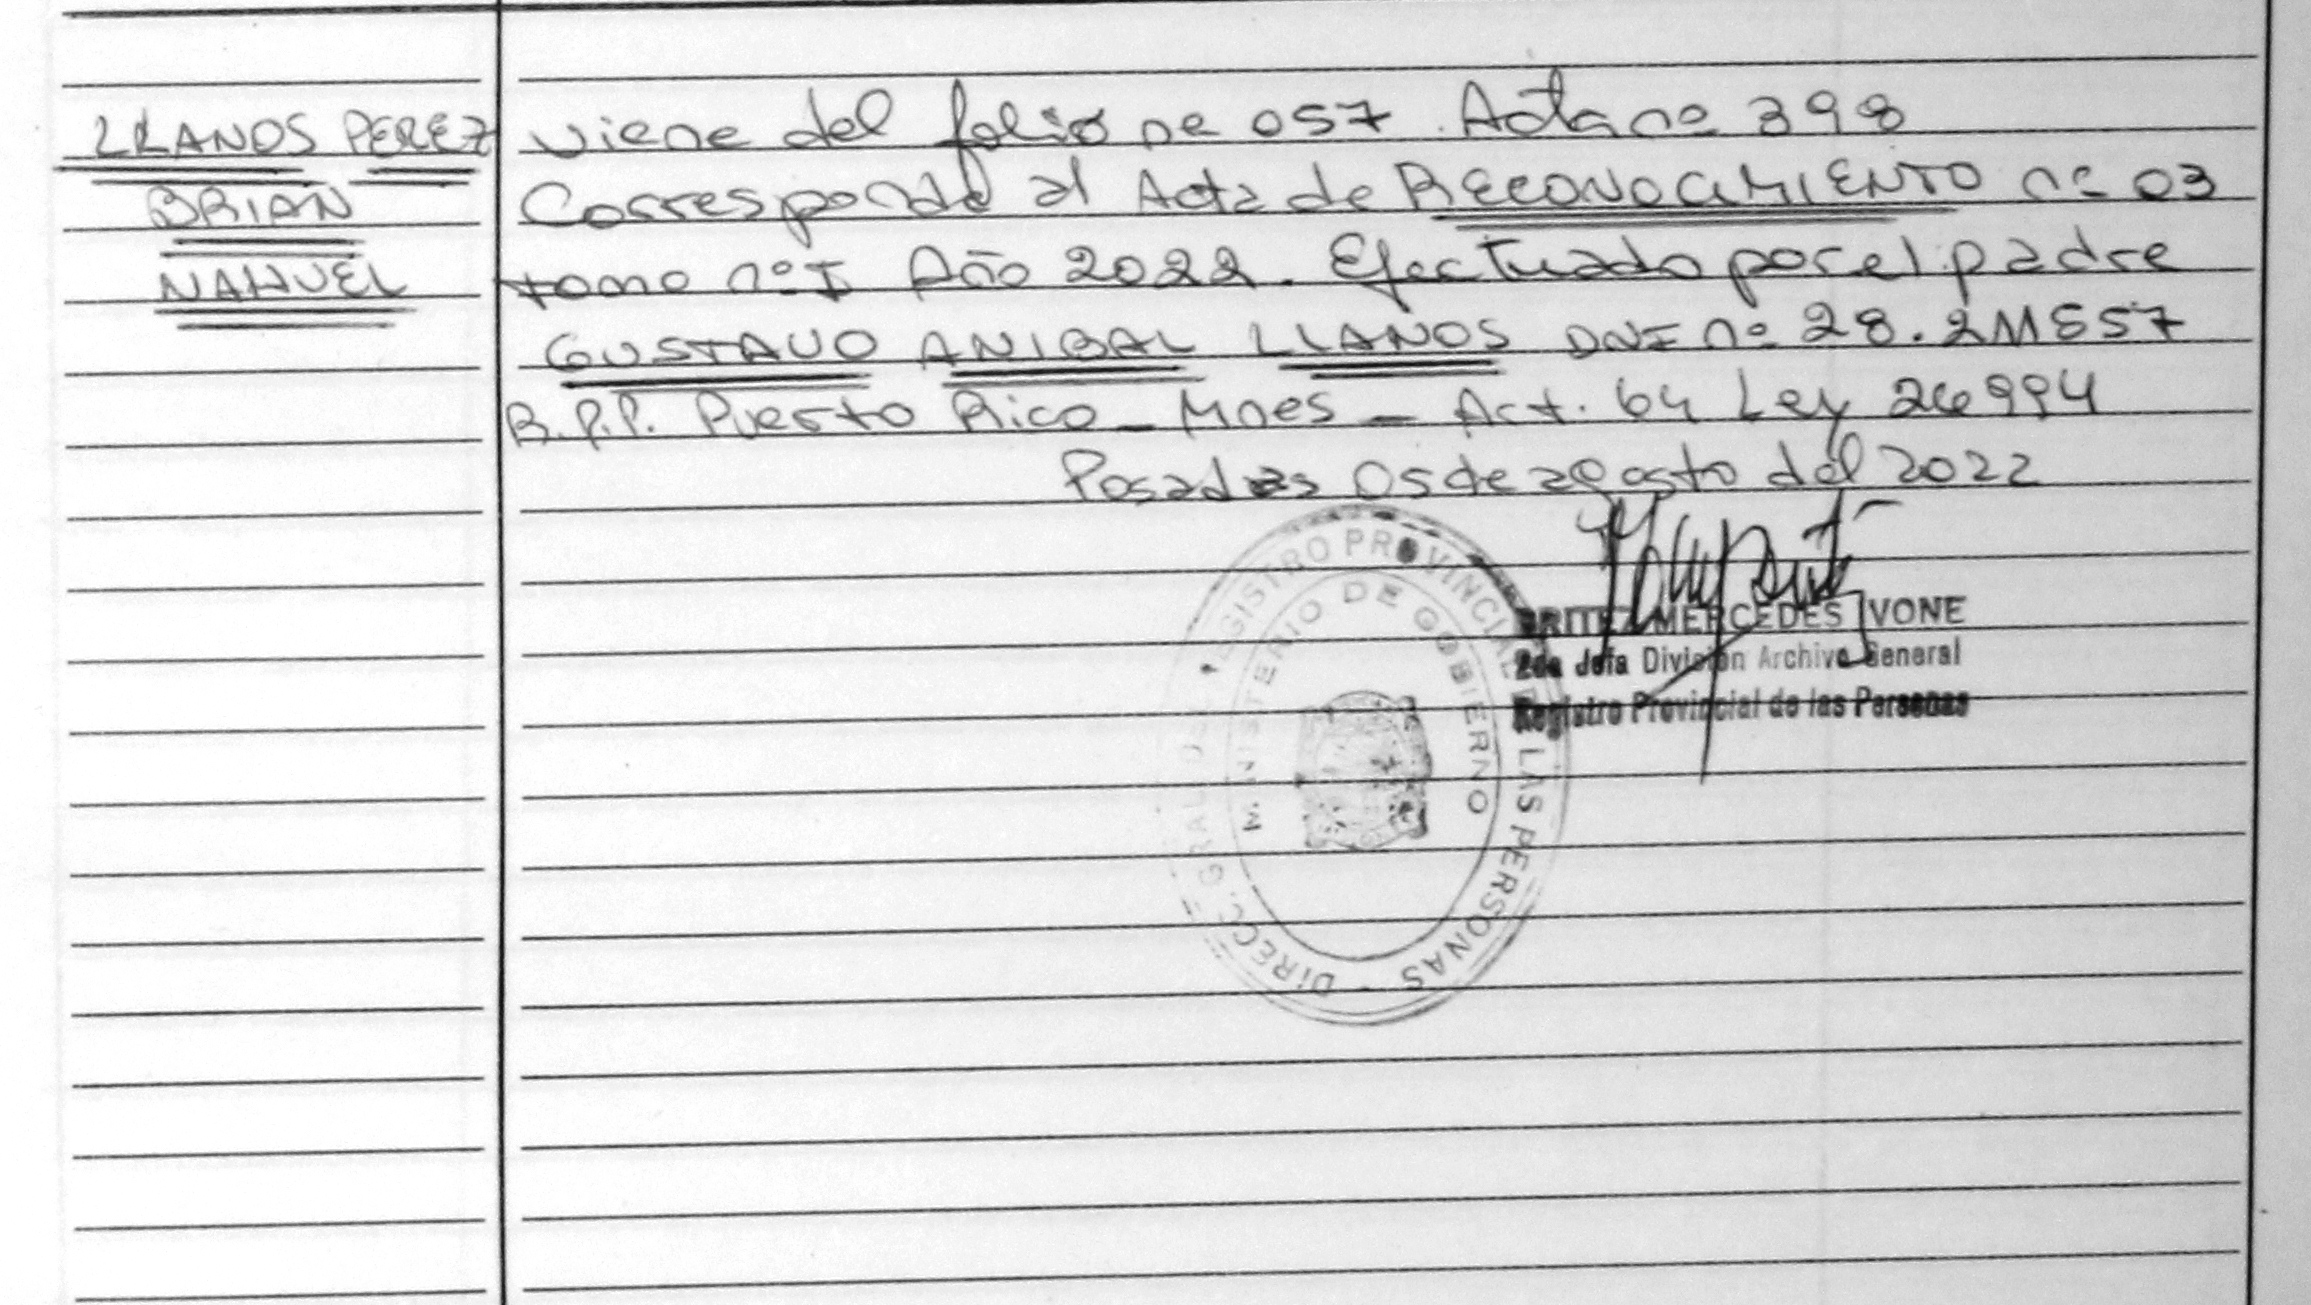 LLANOS PEREZ
BRIAN
NAHUEL
viene del folio nº 057. Acta nº 398
Corresponde al Acta de RECONOCIMIENTO nº 03
tomo nº I Año 2022. Efectuado por el padre
GUSTAVO ANIBAL LLANOS DNI nº
R.P.P. Puerto Rico - Mnes - Act. 64 Ley 26994
Posadas 05 de agosto del 2022
BRITEZ MERCEDES IVONE
2da Jefa División Archivo General
Registro Provincial de las Personas
DIREC. GRAL. DEL REGISTRO PROVINCIAL DE LAS PERSONAS -
MINISTERIO DE GOBIERNO